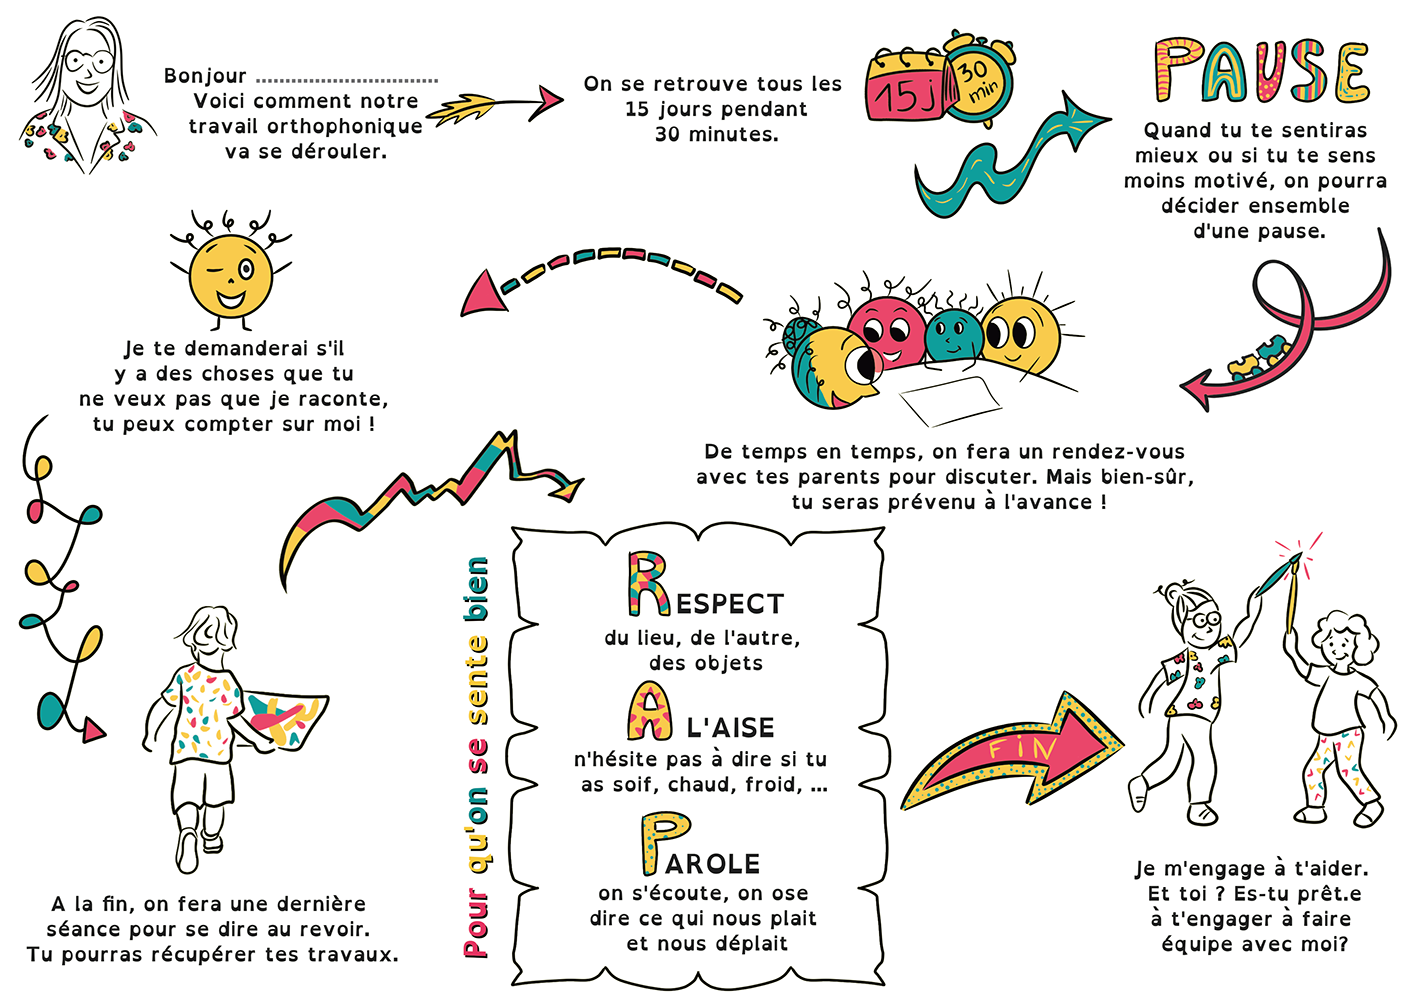 Bonjour ...............................
Voici comment notre
travail orthophonique
va se dérouler.
On se retrouve tous les
15 jours pendant
30 minutes.
15j
30
min
PAUSE
Quand tu te sentiras
mieux ou si tu te sens
moins motivé, on pourra
décider ensemble
d'une pause.
De temps en temps, on fera un rendez-vous
avec tes parents pour discuter. Mais bien-sûr,
tu seras prévenu à l'avance !
Je te demanderai s'il
y a des choses que tu
ne veux pas que je raconte,
tu peux compter sur moi !
A la fin, on fera une dernière
séance pour se dire au revoir.
Tu pourras récupérer tes travaux.
Pour qu'on se sente bien
RESPECT
du lieu, de l'autre,
des objets
A L'AISE
n'hésite pas à dire si tu
as soif, chaud, froid, ...
PAROLE
on s'écoute, on ose
dire ce qui nous plait
et nous déplait
FIN
Je m'engage à t'aider.
Et toi ? Es-tu prêt.e
à t'engager à faire
équipe avec moi?